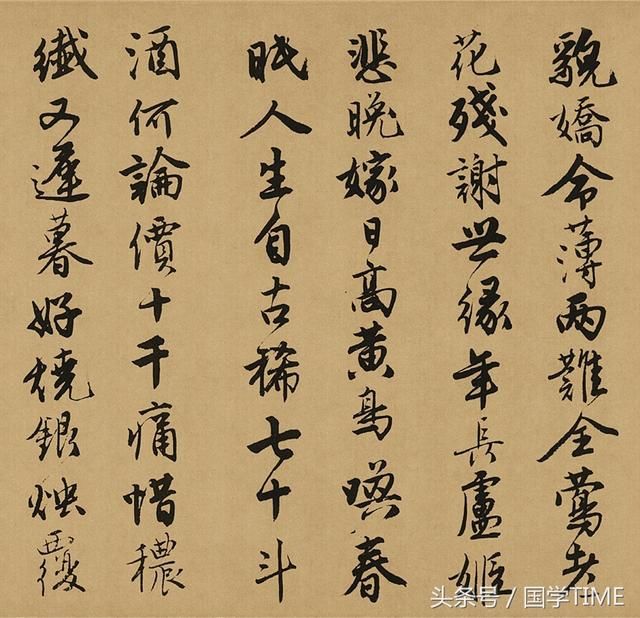 貌嬌命薄两難全鶯老
花殘謝世緣年長盧姬
悲晚嫁日高黃鳥喚春
眠人生自古稀七十斗
酒何論價十千痛惜穠
纖又遲暮好燒銀燭覆
头条号 / 国学TIME